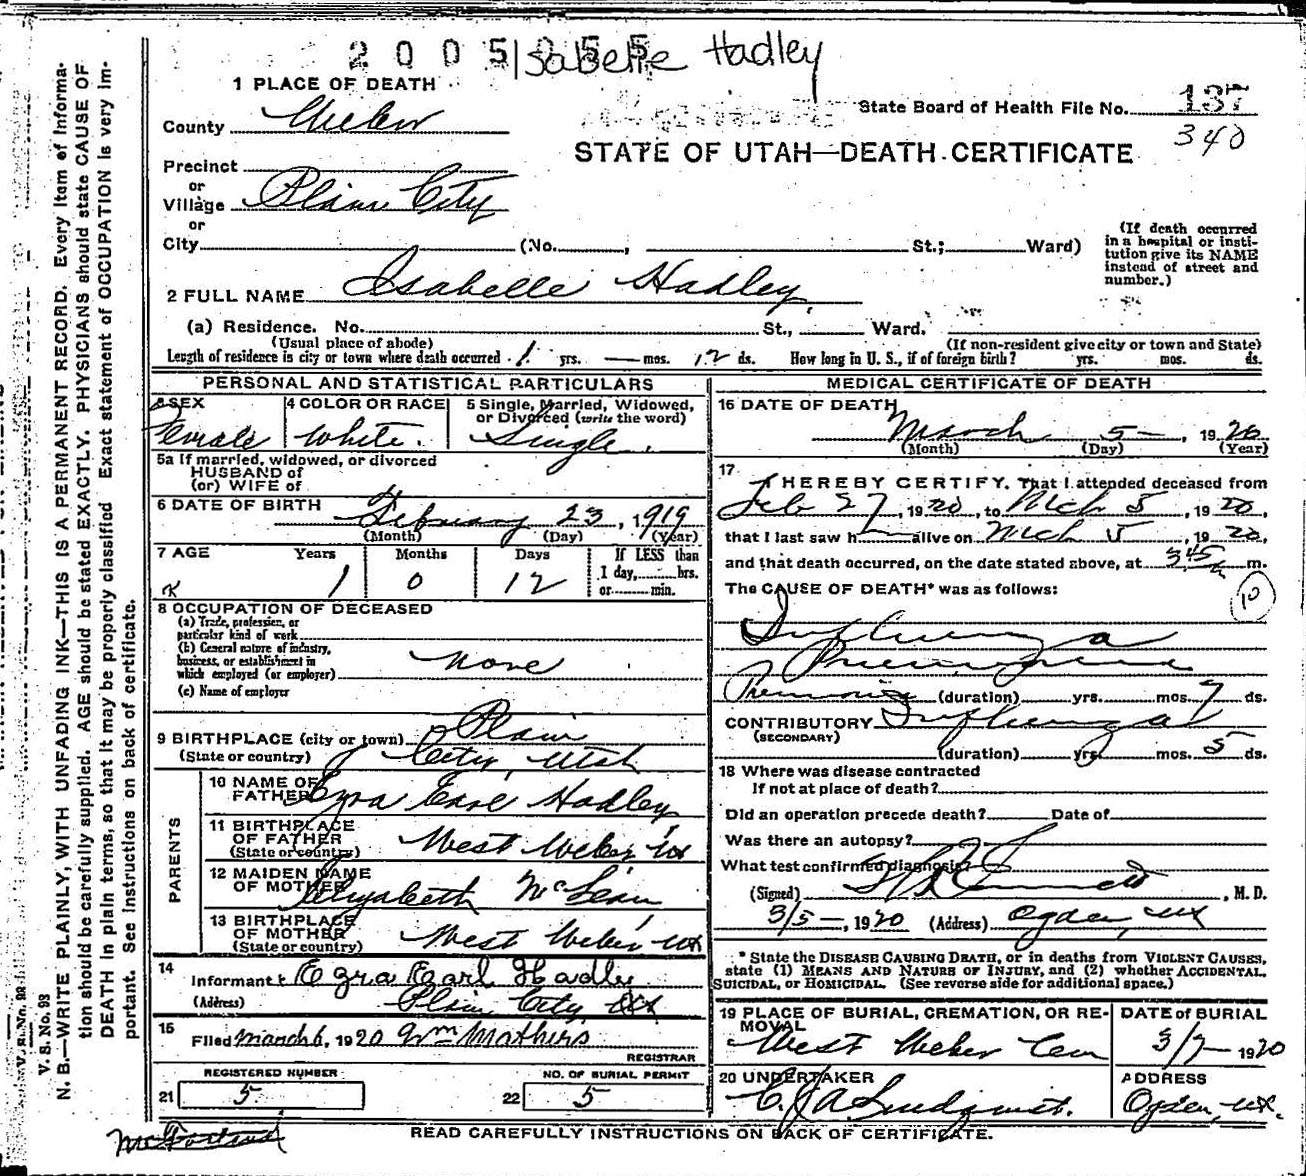 2005055
Isabelle Hadley
1 PLACE OF DEATH
State Board of Health File No. 137
340
County Weber
STATE OF UTAH—DEATH CERTIFICATE
Precinct
or
Village Plain City
or
City (No. , St.; Ward)
(If death occurred in a hospital or institution give its NAME instead of street and number.)
2 FULL NAME Isabelle Hadley
(a) Residence. No. St., Ward.
(Usual place of abode) (If non-resident give city or town and State)
Length of residence is city or town where death occurred 1 yrs. — mos. 12 ds. How long in U. S., if of foreign birth? yrs. mos. ds.
PERSONAL AND STATISTICAL PARTICULARS
3 SEX 4 COLOR OR RACE 5 Single, Married, Widowed, or Divorced (write the word)
Female White. Single.
5a If married, widowed, or divorced
HUSBAND of
(or) WIFE of
6 DATE OF BIRTH
February 23, 1919
(Month) (Day) (Year)
7 AGE Years Months Days If LESS than
1 day, hrs.
1 0 12 or min.
8 OCCUPATION OF DECEASED
(a) Trade, profession, or
particular kind of work
(b) General nature of industry,
business, or establishment in
which employed (or employer) none
(c) Name of employer
9 BIRTHPLACE (city or town) Plain
(State or country) City, Utah
PARENTS
10 NAME OF FATHER Ezra Earl Hadley
11 BIRTHPLACE OF FATHER (State or country) West Weber Ut
12 MAIDEN NAME OF MOTHER Elizabeth McLean
13 BIRTHPLACE OF MOTHER (State or country) West Weber, Ut
14
Informant Ezra Earl Hadley
(Address) Plain City, Ut
15
Filed March 6, 1920 Wm Mathers
REGISTRAR
REGISTERED NUMBER NO. OF BURIAL PERMIT
21 5 22 5
MEDICAL CERTIFICATE OF DEATH
16 DATE OF DEATH
March 5—, 1920
(Month) (Day) (Year)
17
I HEREBY CERTIFY, That I attended deceased from
Feb 27, 1920, to Mch 5, 1920,
that I last saw h alive on Mch 5, 1920,
and that death occurred, on the date stated above, at 3 45 a m.
The CAUSE OF DEATH* was as follows:
10
Influenza
Pneumonia
Pneumonia (duration) yrs. mos. 7 ds.
CONTRIBUTORY Influenza
(SECONDARY)
(duration) yrs. mos. 5 ds.
18 Where was disease contracted
If not at place of death?
Did an operation precede death? Date of
Was there an autopsy?
What test confirmed diagnosis?
(Signed) , M. D.
3/5—, 1920 (Address) Ogden, Ut
* State the DISEASE CAUSING DEATH, or in deaths from VIOLENT CAUSES,
state (1) MEANS AND NATURE OF INJURY, and (2) whether ACCIDENTAL,
SUICIDAL, or HOMICIDAL. (See reverse side for additional space.)
19 PLACE OF BURIAL, CREMATION, OR REMOVAL DATE of BURIAL
West Weber Cem 3/7— 1920
20 UNDERTAKER ADDRESS
C. J. A. Lindquist. Ogden, Ut.
READ CAREFULLY INSTRUCTIONS ON BACK OF CERTIFICATE.
McFarland
V. S. No. 98
N. B.—WRITE PLAINLY, WITH UNFADING INK—THIS IS A PERMANENT RECORD. Every Item of Informa-
tion should be carefully supplied. AGE should be stated EXACTLY. PHYSICIANS should state CAUSE OF
DEATH in plain terms, so that it may be properly classified Exact statement of OCCUPATION is very im-
portant. See instructions on back of certificate.